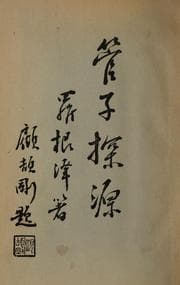 管子探源
羅根澤著
顧頡剛題